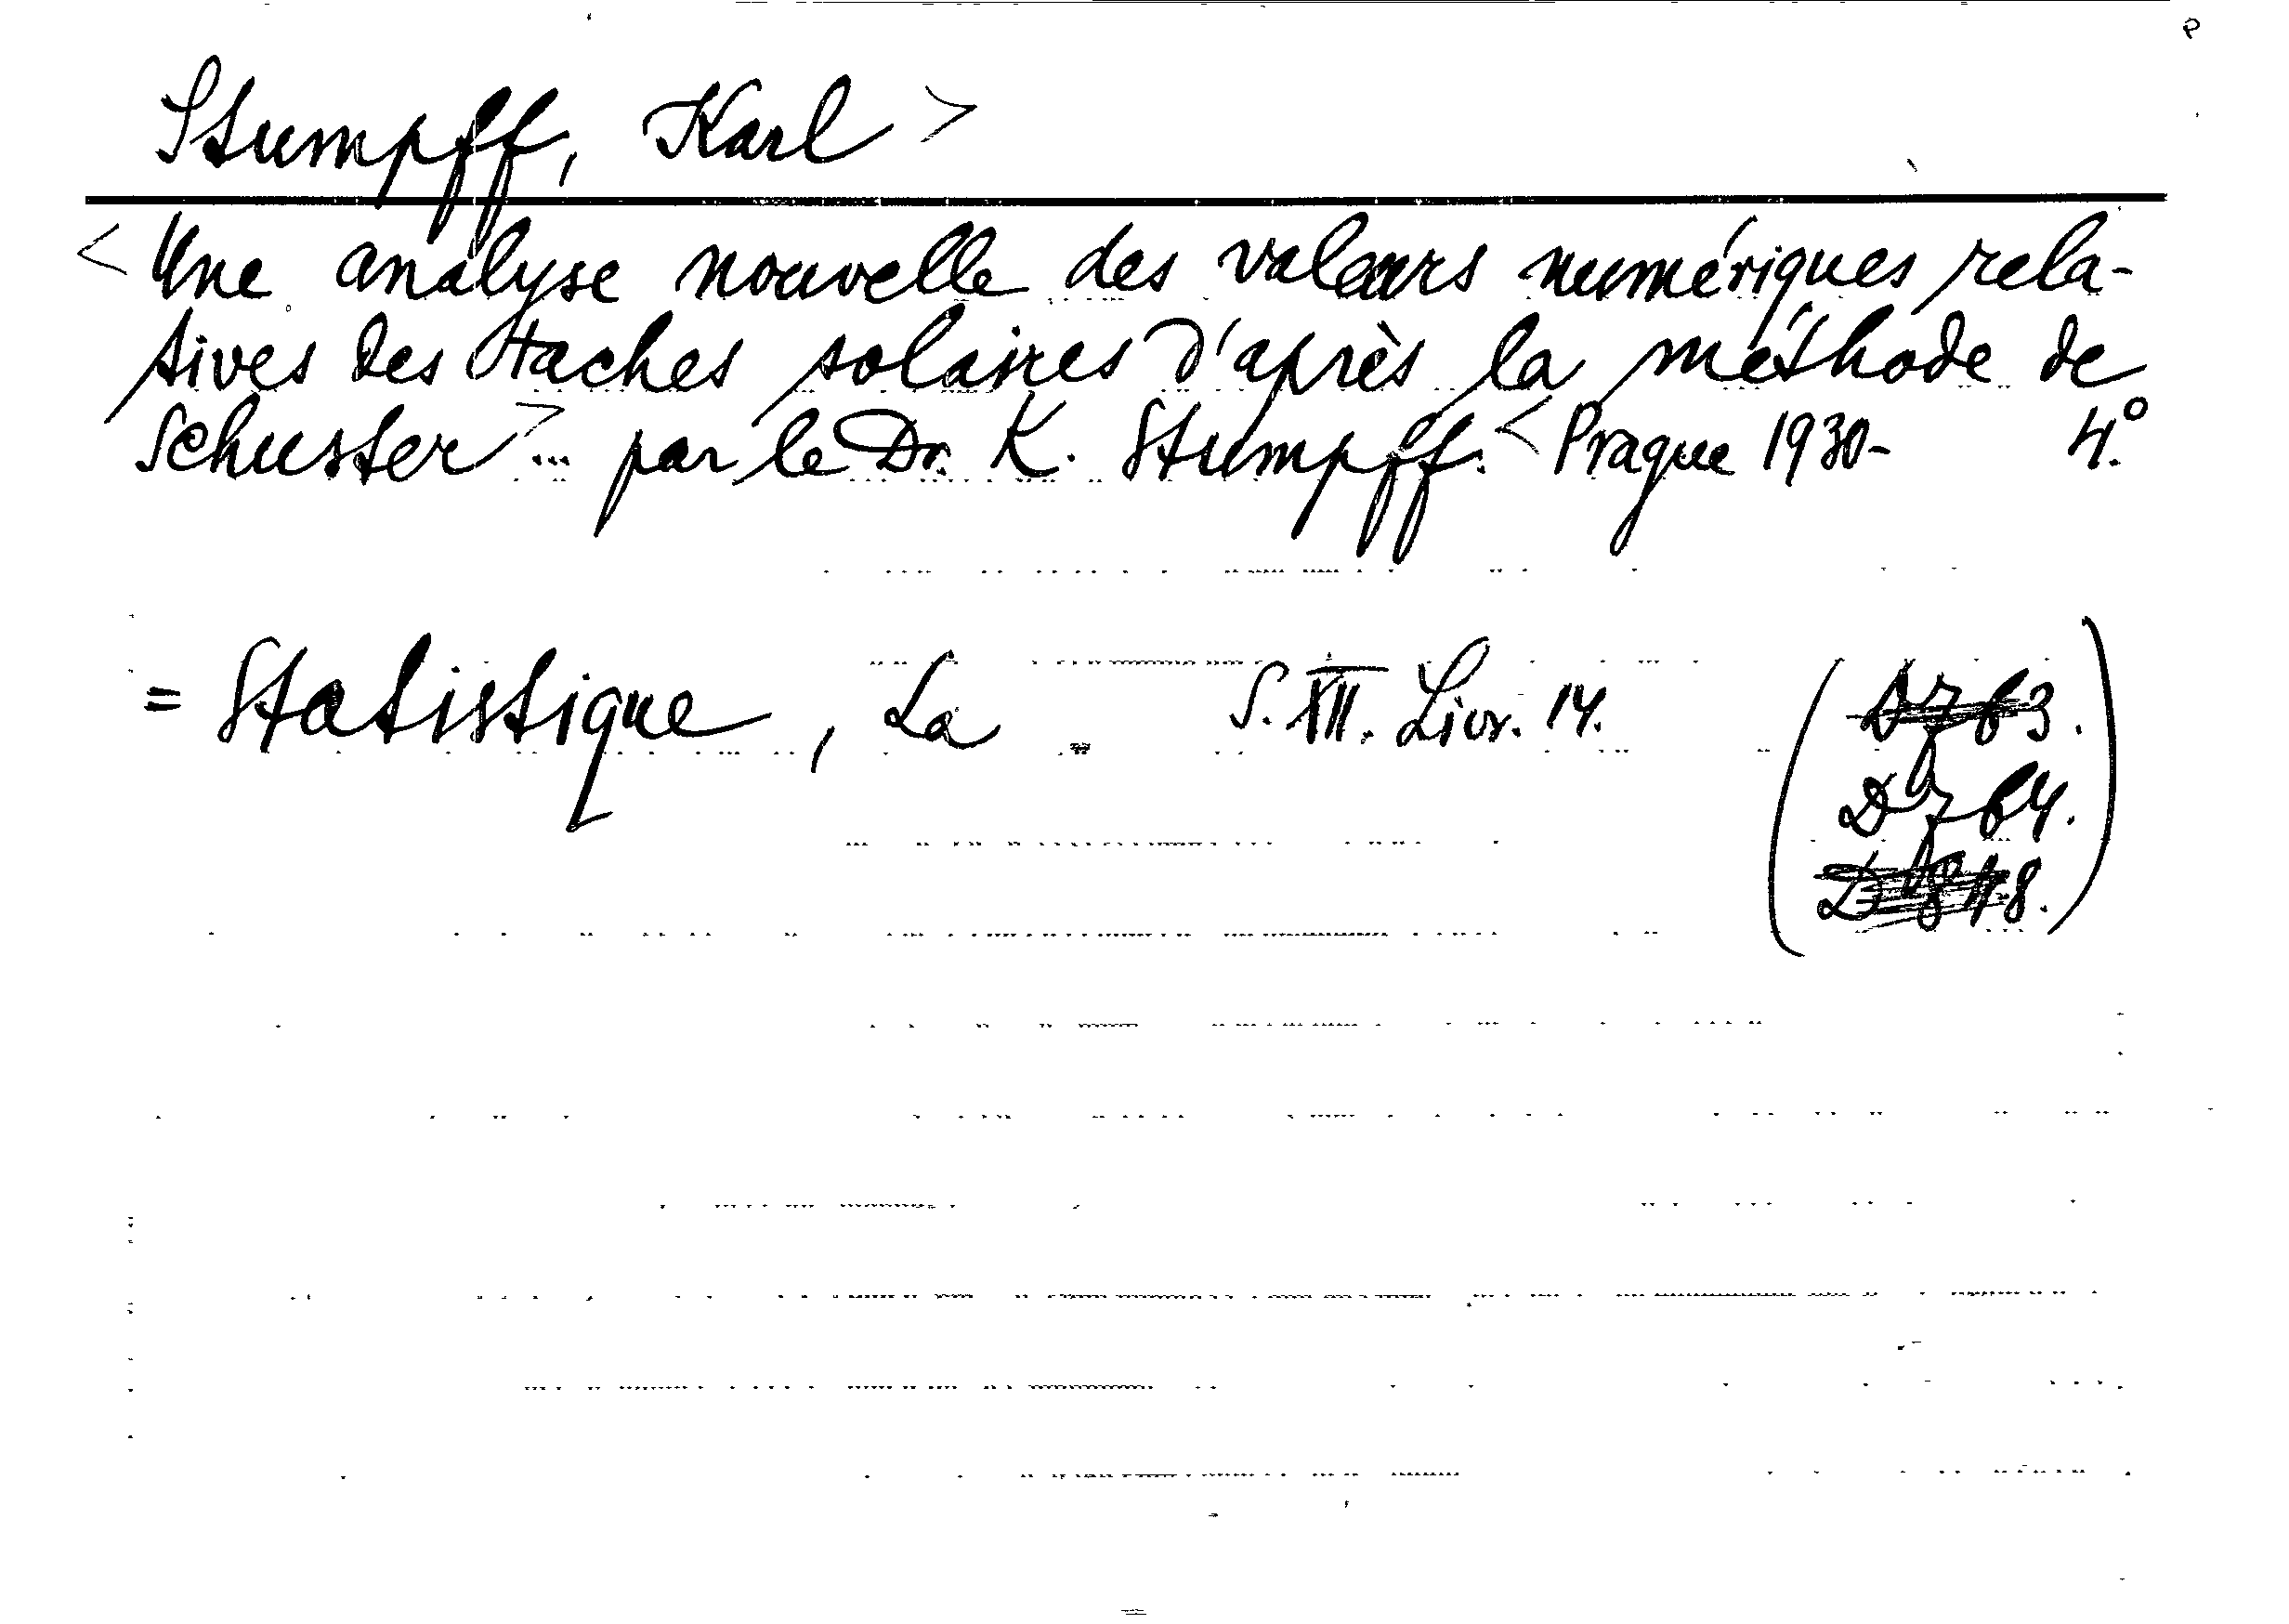 Stumpff, Karl >
< Une analyse nouvelle des valeurs numériques rela-
tives des taches solaires d'après la méthode de
Schuster > ... par le Dr. K. Stumpff. < Prague 1930- 4.°
= Statistique, La S. XII. Livr. 14.